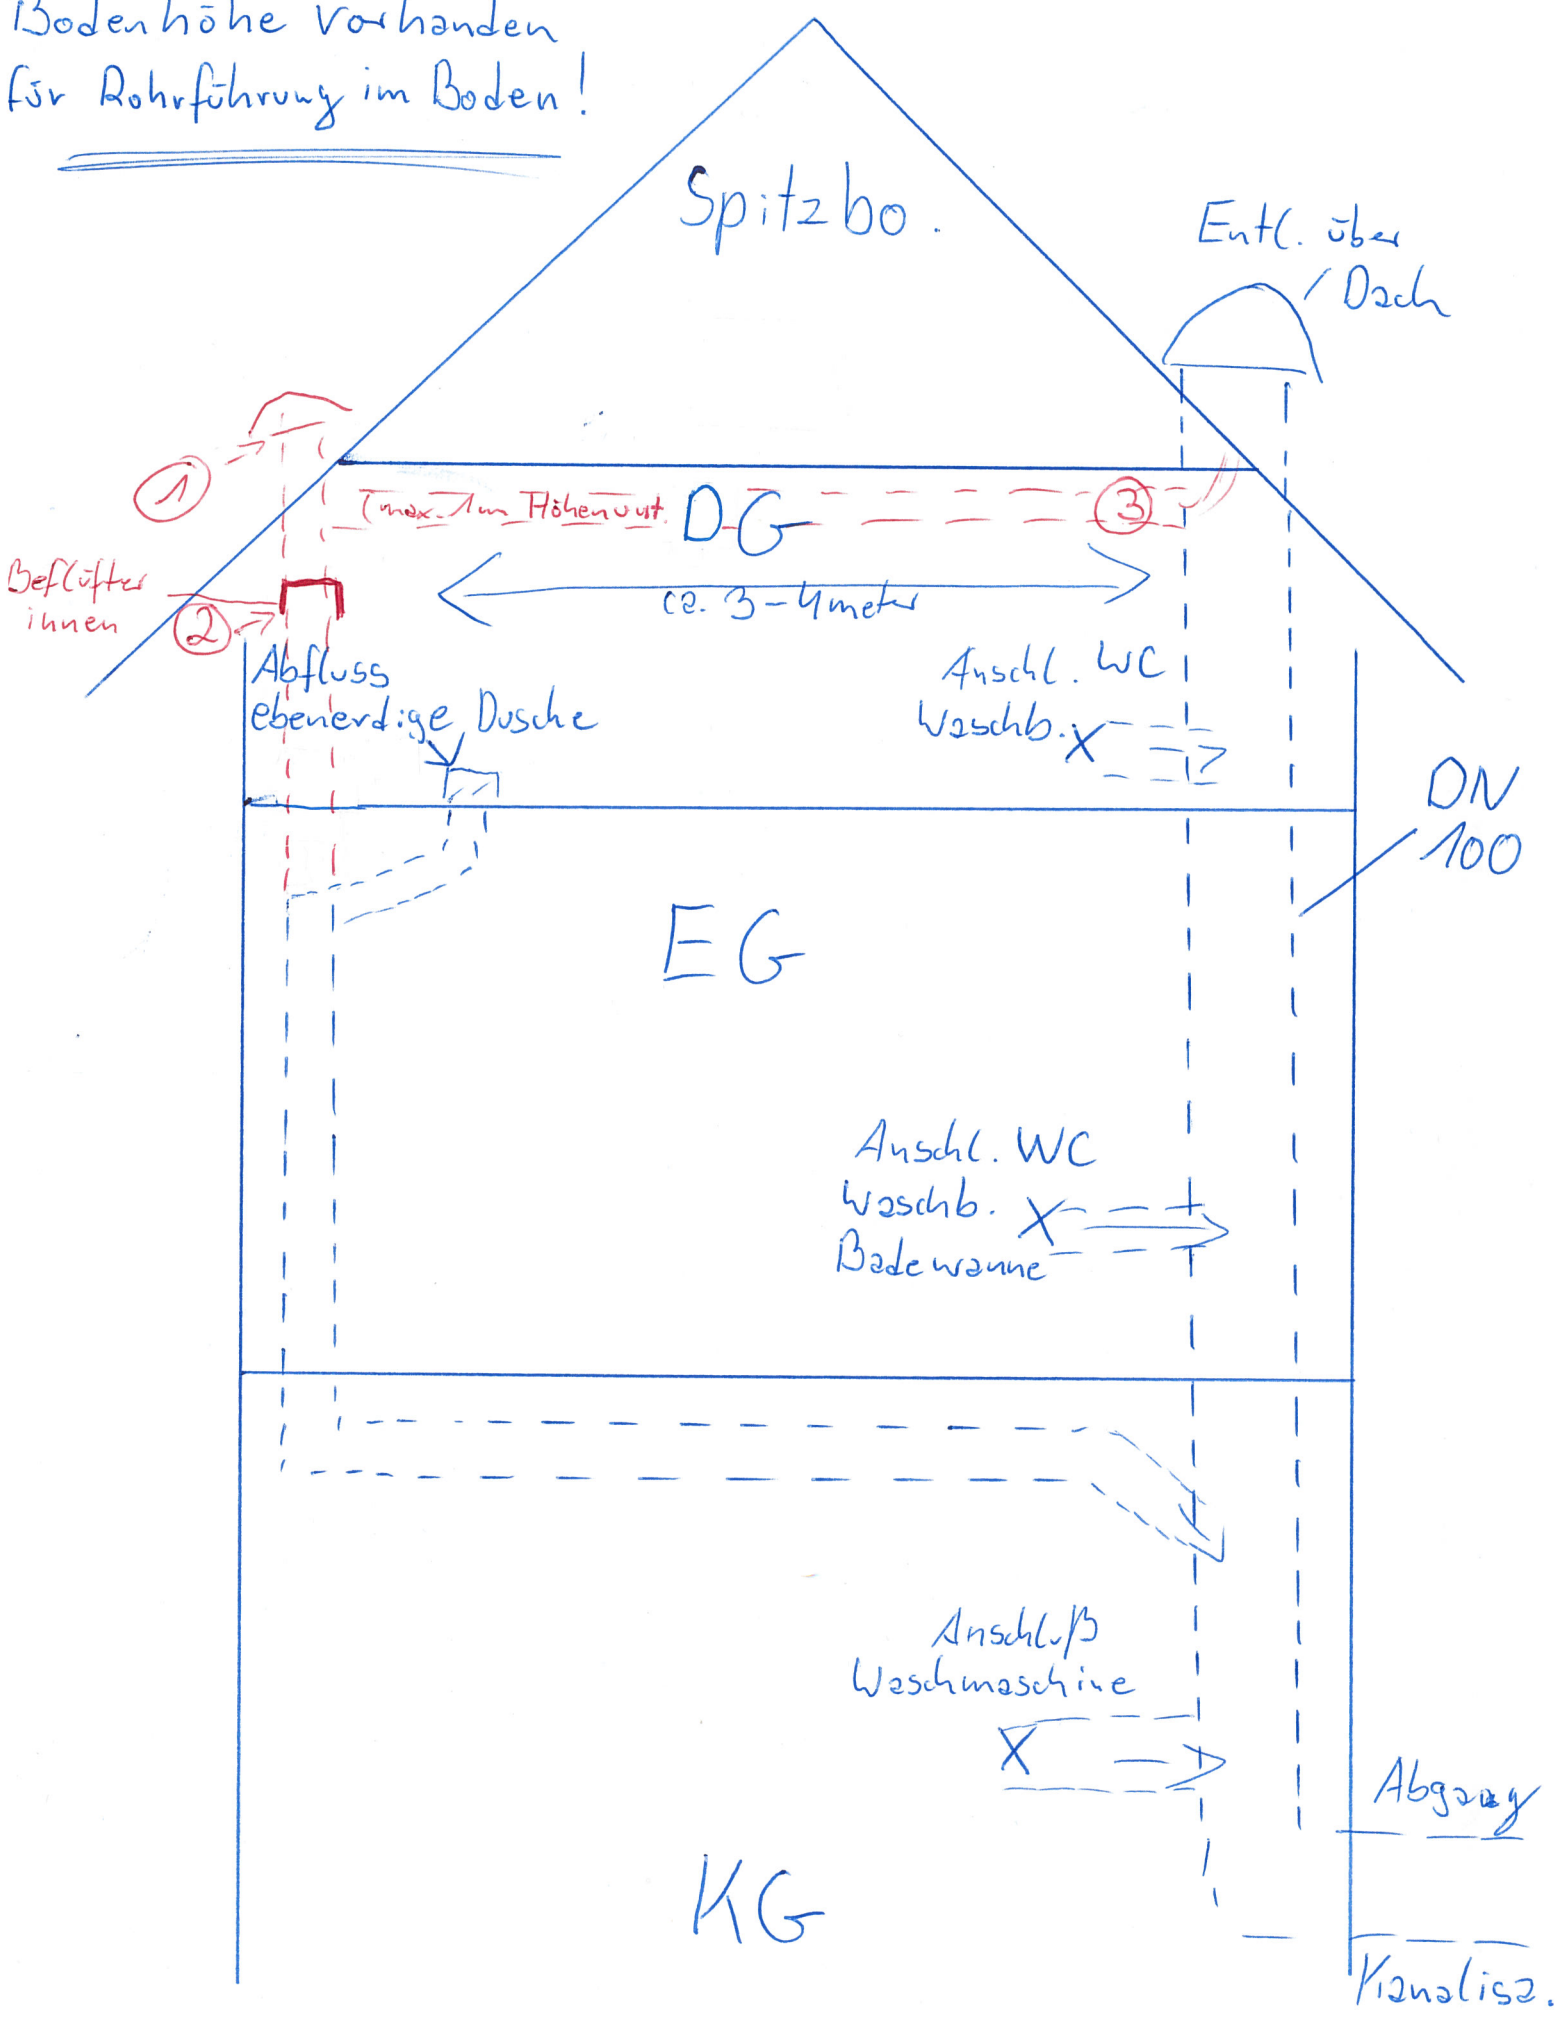 Bodenhöhe vorhanden
für Rohrführung im Boden!
Spitzbo.
Entl. über
Dach
1
(max. 1m Höhenunt.
DG
3
Beflüfter
innen
2
ca. 3-4meter
Abfluss
ebenerdige Dusche
Anschl. WC
Waschb. X
DN
100
EG
Anschl. WC
Waschb. X
Badewanne
Anschluß
Waschmaschine
X
Abgang
KG
Kanalisa.